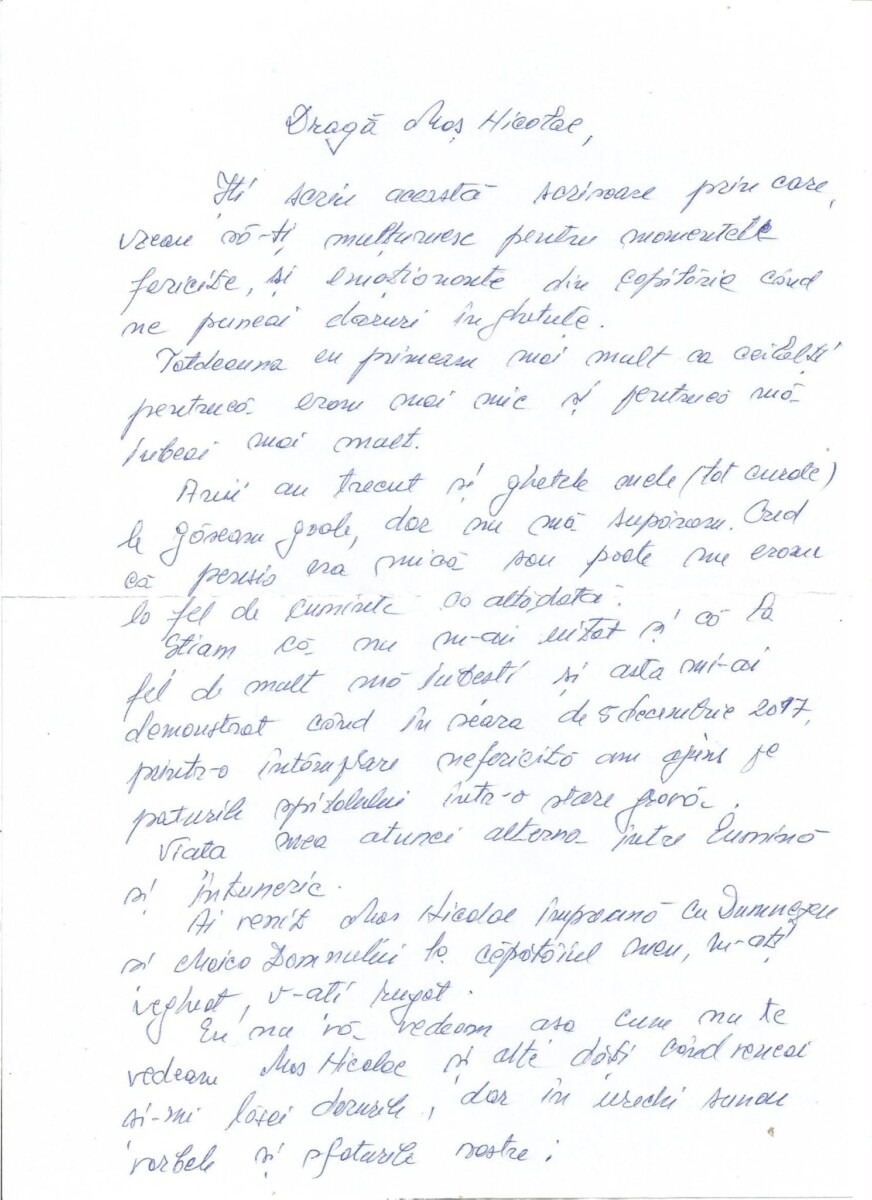 Dragă Moș Nicolae,
Îți scriu această scrisoare prin care,
vreau să-ți mulțumesc pentru momentele
fericite, și emoționante din copilărie când
ne puneai daruri în ghetuțe.
Totdeauna eu primeam mai mult ca ceilalți
pentrucă eram mai mic și pentrucă mă
iubeai mai mult.
Anii au trecut și ghetele mele (tot curate)
le găseam goale, dar nu mă supăram. Cred
că pensia era mică sau poate nu eram
la fel de cuminte ca altădată.
Știam că nu m-ai uitat și că la
fel de mult mă iubești și asta mi-ai
demonstrat când în seara de 5 decembrie 2017,
printr-o întâmplare nefericită am ajuns pe
paturile spitalului într-o stare gravă.
Viata mea atunci alterna între lumină
și întuneric.
Ai venit Moș Nicolae împreună cu Dumnezeu
și Maica Domnului la căpătâiul meu, m-ați
vegheat, v-ati rugat.
Eu nu vă vedeam asa cum nu te
vedeam Moș Nicolae și alte dăți când veneai
si-mi lăsai darurile, dar în urechi sunau
vorbele și sfaturile voastre: